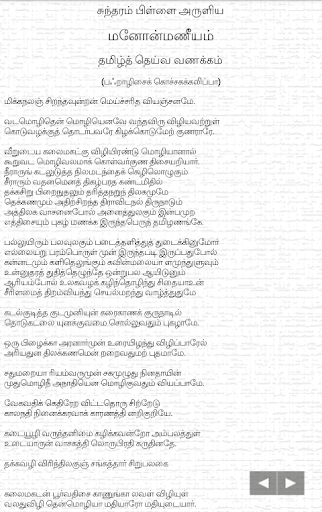 சுந்தரம் பிள்ளை அருளிய
மனோன்மணீயம்
தமிழ்த் தெய்வ வணக்கம்
(பஃறாழிசைக் கொச்சகக்கலிப்பா)
மிக்கநலஞ் சிறந்தவுன்றன் மெய்ச்சரித வியஞ்சனமே.
வடமொழிதென் மொழியெனவே வந்தவிரு விழியவற்றுள்
கொடுவழக்குத் தொடர்பவரே கிழக்கொடுமேற் குணராரே.
வீறுடைய கலைமகட்கு விழியிரண்டு மொழியானால்
கூறுவட மொழிவலமாக் கொள்வர்குண திசையறியார்.
நீராருங் கடலுடுத்த நிலமடந்தைக் கெழிலொழுகும்
சீராரும் வதனமெனத் திகழ்பரத கண்டமிதில்
தக்கசிறு பிறைநுதலும் தரித்தநறுந் திலகமுமே
தெக்கணமும் அதிற்சிறந்த திராவிடநல் திருநாடும்
அத்திலக வாசனைபோல் அனைத்துலகும் இன்பமுற
எத்திசையும் புகழ் மணக்க இருந்தபெருந் தமிழணங்கே.
பல்லுயிரும் பலவுலகும் படைத்தளித்துத் துடைக்கினுமோர்
எல்லையறு பரம்பொருள் முன் இருந்தபடி இருப்பதுபோல்
கன்னடமும் களிதெலுங்கும் கவின்மலையா ளமுந்துளுவும்
உன்னுதரத் துதித்தெழுந்தே ஒன்றுபல ஆயிடினும்
ஆரியம்போல் உலகவழக் கழிந்தொழிந்து சிதையாஉன்
சீரிளமைத் திறம்வியந்து செயல்மறந்து வாழ்த்துதுமே
கடல்குடித்த குடமுனியுன் கரைகாணக் குருநாடில்
தொடுகடலை யுனக்குவமை சொல்லுவதும் புகழாமே.
ஒரு பிழைக்கா அரனார்முன் உரையிழந்து விழிப்பாரேல்
அரியதுன திலக்கணமென் றறைவதுமற் புதமாமே.
சதுமறையா ரியம்வருமுன் சகமுழுது நினதாயின்
முதுமொழிநீ அநாதியென மொழிகுவதும் வியப்பாமே.
வேகவதிக் கெதிரேற விட்டதொரு சிற்றேடு
காலநதி நினைக்கரவாக் காரணத்தி னறிகுறியே.
கடையூழி வருந்தனிமை கழிக்கவன்றோ அம்பலத்துள்
உடையாருன் வாசகத்தி லொருபிரதி கருதினதே.
தக்கவழி விரிந்திலகுஞ் சங்கத்தார் சிறுபலகை
கலைமகடன் பூர்வதிசை காணுங்கா லவள் விழியுள்
வலதுவிழி தென்மொழியா மதியாரோ மதியுடையார்.